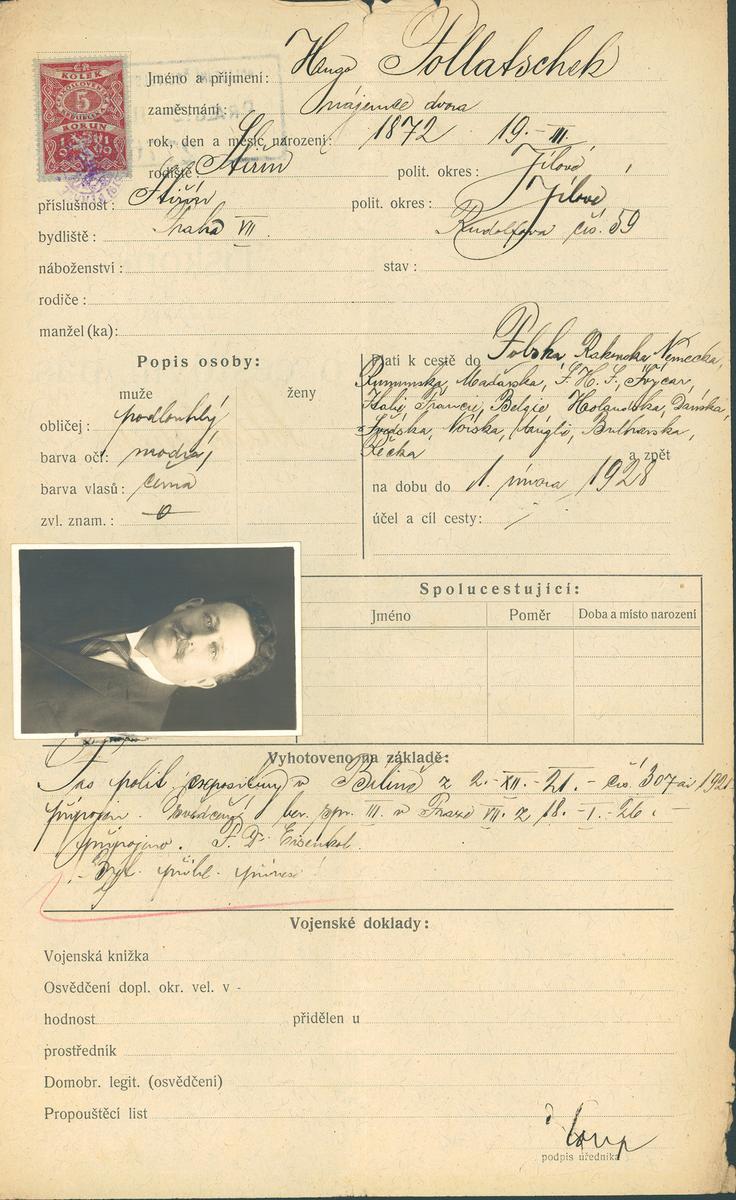 KOLEK
5
KORUN
Jméno a příjmení: Hugo Pollatschek
zaměstnání: nájemce dvora
rok, den a měsíc narození: 1872 19.-III.
rodiště: Štiřín polit. okres: Jílové
příslušnost: Štiřín polit. okres: Jílové
bydliště: Praha VII. Rudolfova čís. 59
náboženství: stav:
rodiče:
manžel (ka):
Popis osoby:
muže ženy
obličej: podlouhlý
barva očí: modrá
barva vlasů: černá
zvl. znam.: 0
Platí k cestě do Polska, Rakouska, Německa,
Rumunska, Maďarska, S.H.S., Švýcar,
Italie, Francie, Belgie, Holandska, Dánska,
Švédska, Norska, Anglie, Bulharska,
Řecka a zpět
na dobu do 1. února 1928
účel a cíl cesty:
Spolucestující:
Jméno Poměr Doba a místo narození
Vyhotoveno na základě:
Pas polit. expositury v Bilině z 2.-XII.-21.- čís. 307 ai 1921
připojen. ber. spr. III. v Praze VII. z 18.-I.-26.-
připojeno.
Vojenské doklady:
Vojenská knížka
Osvědčení dopl. okr. vel. v -
hodnost přidělen u
prostředník
Domobr. legit. (osvědčení)
Propouštěcí list
podpis úředníka